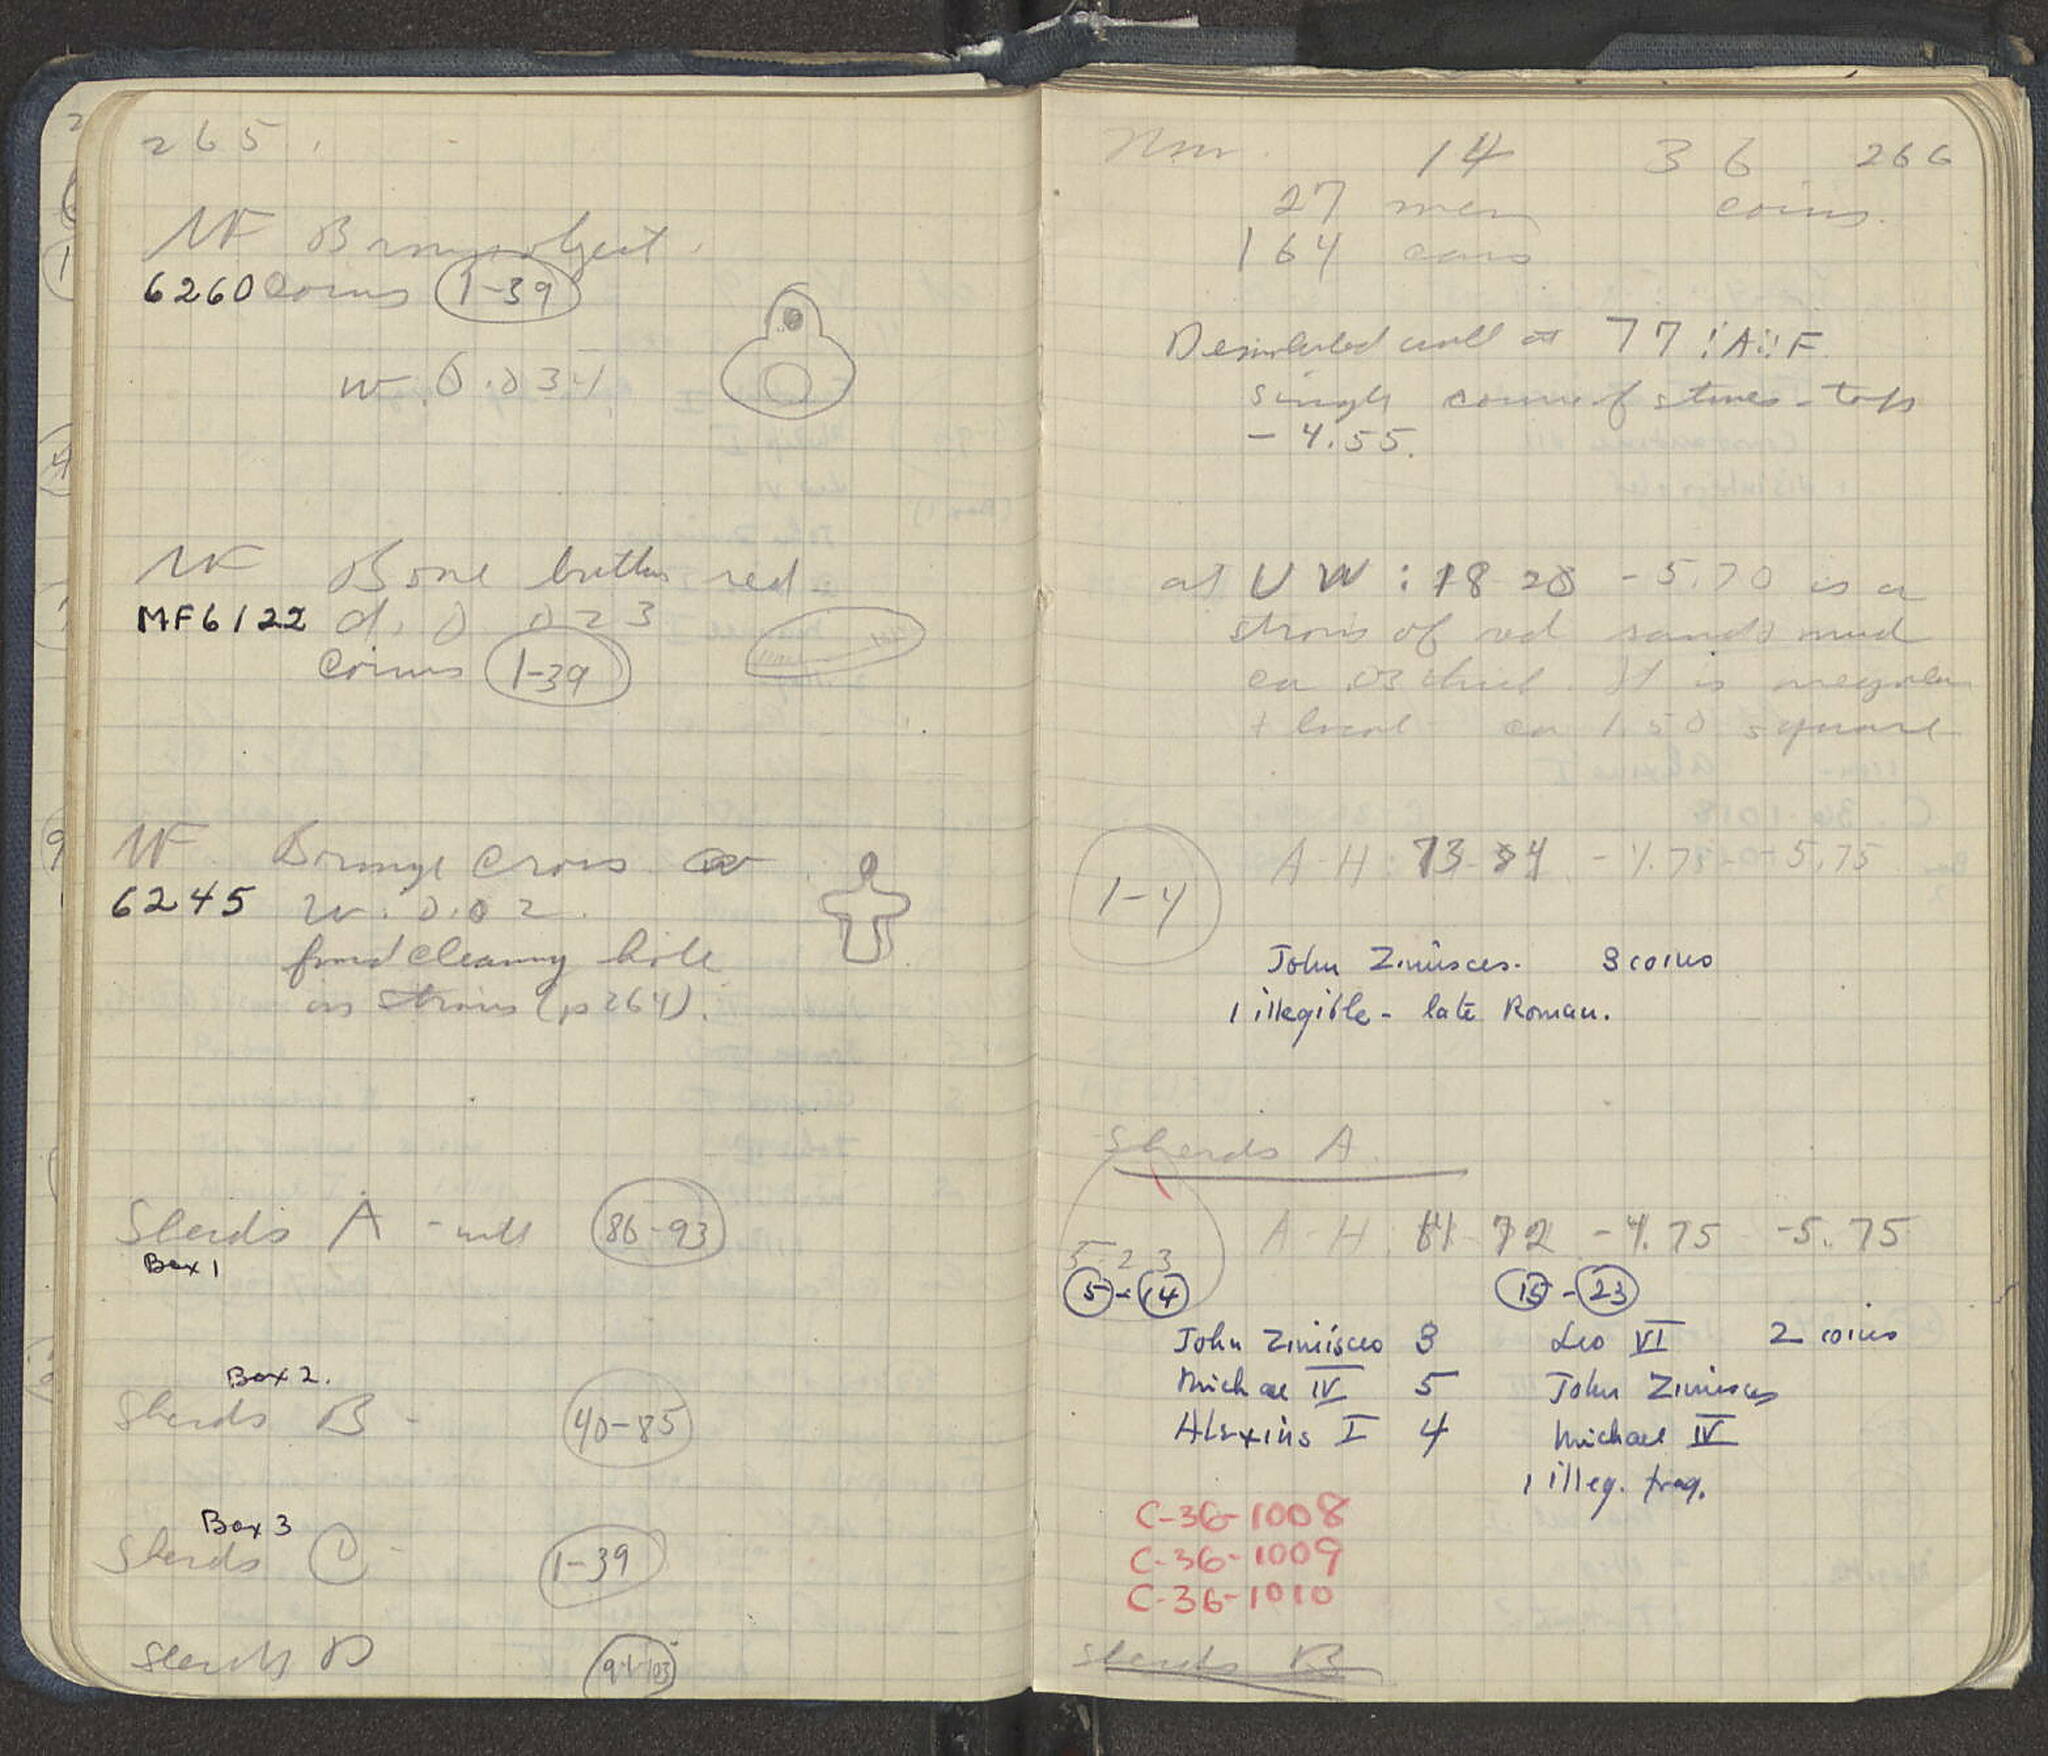 265.
MF Bronze object.
6260 Coins 1-39
w. 0.034
MF Bone button red
MF6122 d. 0.023
Coins 1-39
MF Bronze cross
6245 w. 0.02.
found cleaning hole
in strosis (p 264).
Sherds A - well 86-93
Box 1
Box 2.
Sherds B - 40-85
Box 3
Sherds C - 1-39
Sherds D 94-103
Nov. 14 36 266
27 men coins.
164 cars
Demolished wall at 77 : A : F
single course of stones - tops
- 4.55.
at U W : 18 20 - 5.70 is a
strosis of red sandy mud
ca .03 thick. It is irregular
+ local - ca 1.50 square
A-H: 73-84 - 4.75 - 5.75
1-4
John Zimisces. 3 coins
1 illegible - late Roman.
Sherds A.
A-H: 72 - 4.75 - 5.75
5-23
5 - 14 15 - 23
John Zimisces 3 Leo VI 2 coins
Michael IV 5 John Zimisces
Alexius I 4 Michael IV
1 illeg. frag.
C-36-1008
C-36-1009
C-36-1010
Sherds B